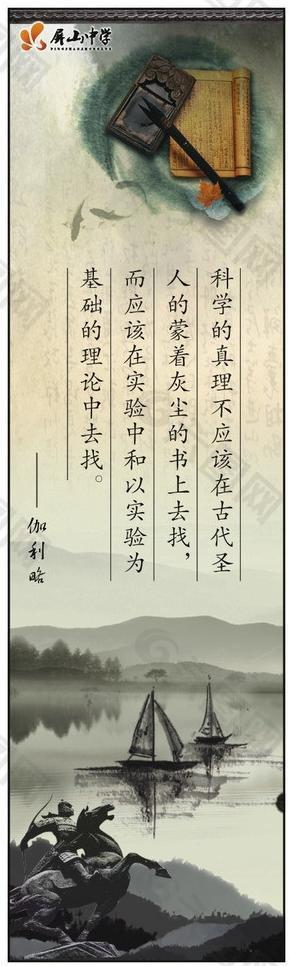 屏山中学
科学的真理不应该在古代圣
人的蒙着灰尘的书上去找，
而应该在实验中和以实验为
基础的理论中去找。
——伽利略